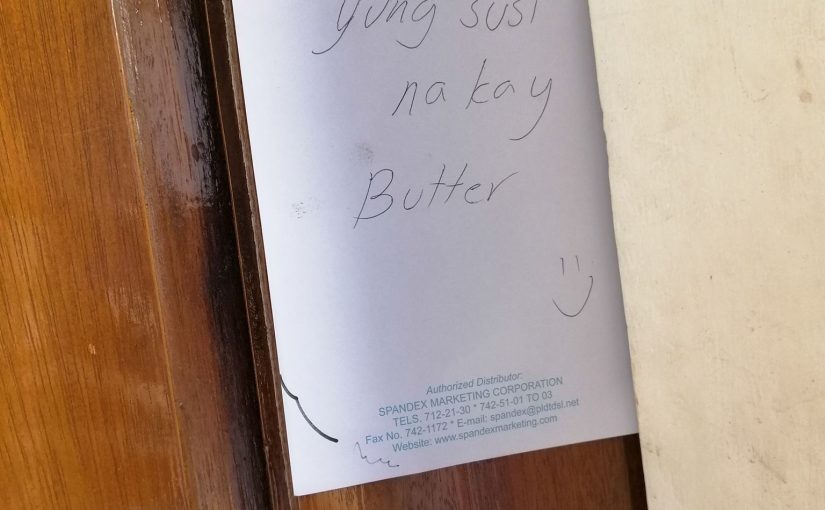 yung susi
na kay
Butter
Authorized Distributor:
SPANDEX MARKETING CORPORATION
TELS. 712-21-30 * 742-51-01 TO 03
Fax No. 742-1172 * E-mail: spandex@pldtdsl.net
Website: www.spandexmarketing.com